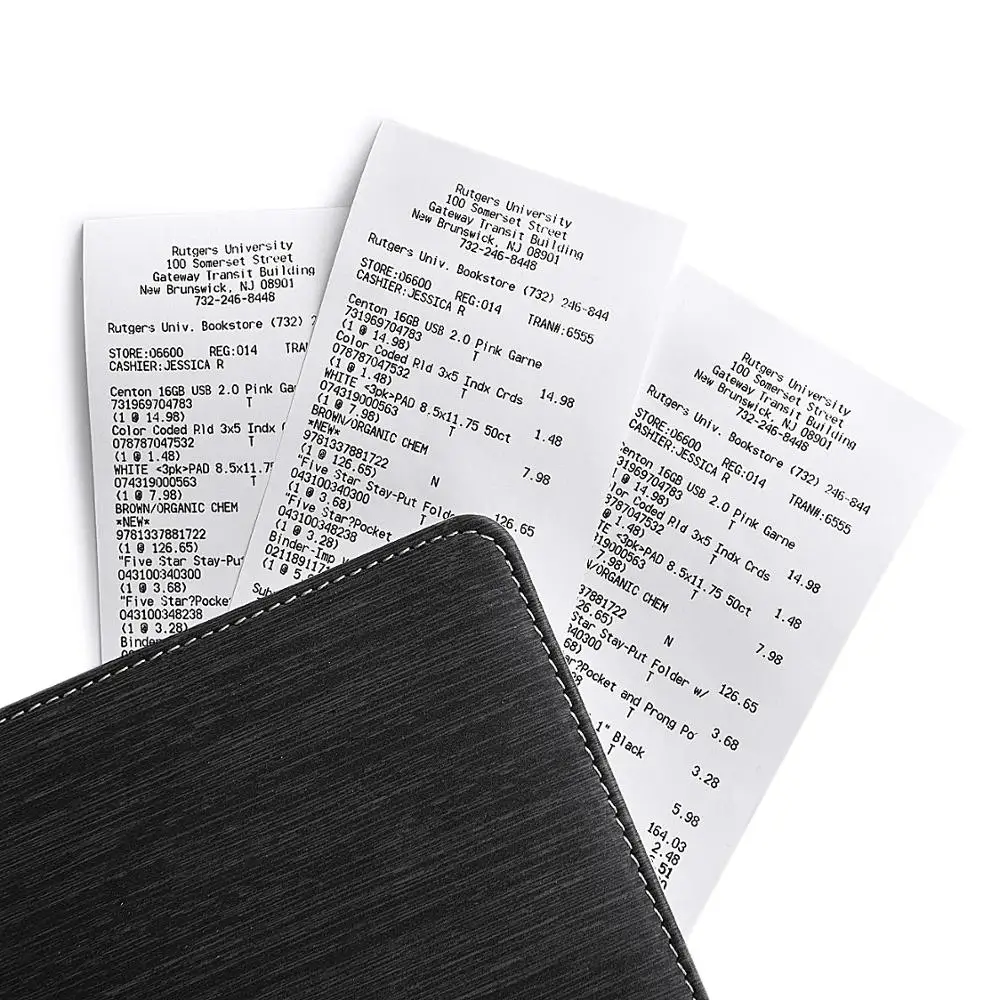 Rutgers University
100 Somerset Street
Gateway Transit Building
New Brunswick, NJ 08901
732-246-8448
Rutgers Univ. Bookstore (732)
STORE:06600 REG:014
CASHIER:JESSICA R
Centon 16GB USB 2.0 Pink
731969704783 T
(1 @ 14.98)
Color Coded Rld 3x5 Indx
078787047532 T
(1 @ 1.48)
WHITE <3pk>PAD 8.5x11.75
074319000563 T
(1 @ 7.98)
BROWN/ORGANIC CHEM
*NEW*
9781337881722
(1 @ 126.65)
"Five Star Stay-Pu
043100340300
(1 @ 3.68)
"Five Star?Pocke
043100348238
(1 @ 3.28)
Binder-
Rutgers University
100 Somerset Street
Gateway Transit Building
New Brunswick, NJ 08901
732-246-8448
Rutgers Univ. Bookstore (732) 246-844
STORE:06600 REG:014 TRAN#:6555
CASHIER:JESSICA R
Centon 16GB USB 2.0 Pink Garne
731969704783 T
(1 @ 14.98) 14.98
Color Coded Rld 3x5 Indx Crds
078787047532 T
(1 @ 1.48) 1.48
WHITE <3pk>PAD 8.5x11.75 50ct
074319000563 T
(1 @ 7.98) 7.98
BROWN/ORGANIC CHEM
*NEW*
9781337881722 N
(1 @ 126.65) 126.65
"Five Star Stay-Put Folde
043100340300
(1 @ 3.68)
"Five Star?Pocket
043100348238
(1 @ 3.28)
Binder-Imp
02118911
(1 @ 5
Su
Rutgers University
100 Somerset Street
Gateway Transit Building
New Brunswick, NJ 08901
732-246-8448
Rutgers Univ. Bookstore (732) 246-844
STORE:06600 REG:014 TRAN#:6555
CASHIER:JESSICA R
enton 16GB USB 2.0 Pink Garne
31969704783 T
@ 14.98) 14.98
lor Coded Rld 3x5 Indx Crds
8787047532 T
@ 1.48) 1.48
TE <3pk>PAD 8.5x11.75 50ct
19000563 T
7.98) 7.98
N/ORGANIC CHEM
7881722 N
26.65) 126.65
Star Stay-Put Folder w/
40300 T
68) 3.68
ar?Pocket and Prong Po
T
3.28
1" Black
T
5.98
164.03
2.48
51